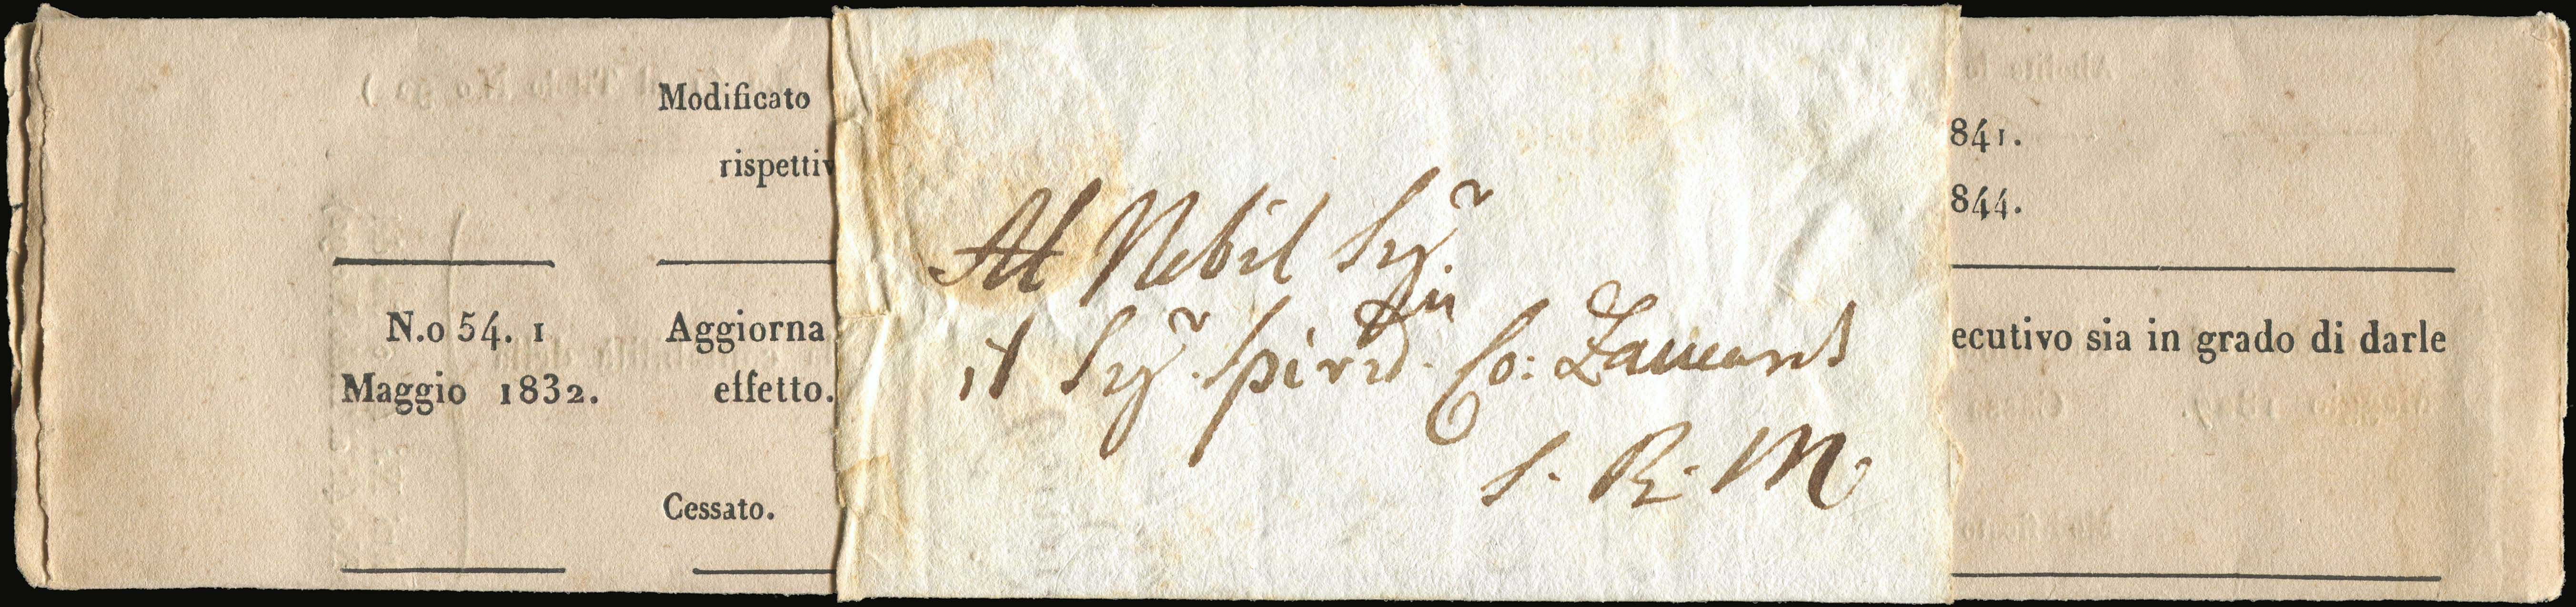 Modificato
rispettiv
N.o 54. 1
Maggio 1832.
Aggiorna
effetto.
Cessato.
Al Nobil Sigr.
il Sigr. Co:
S. R. M.
841.
844.
ecutivo sia in grado di darle